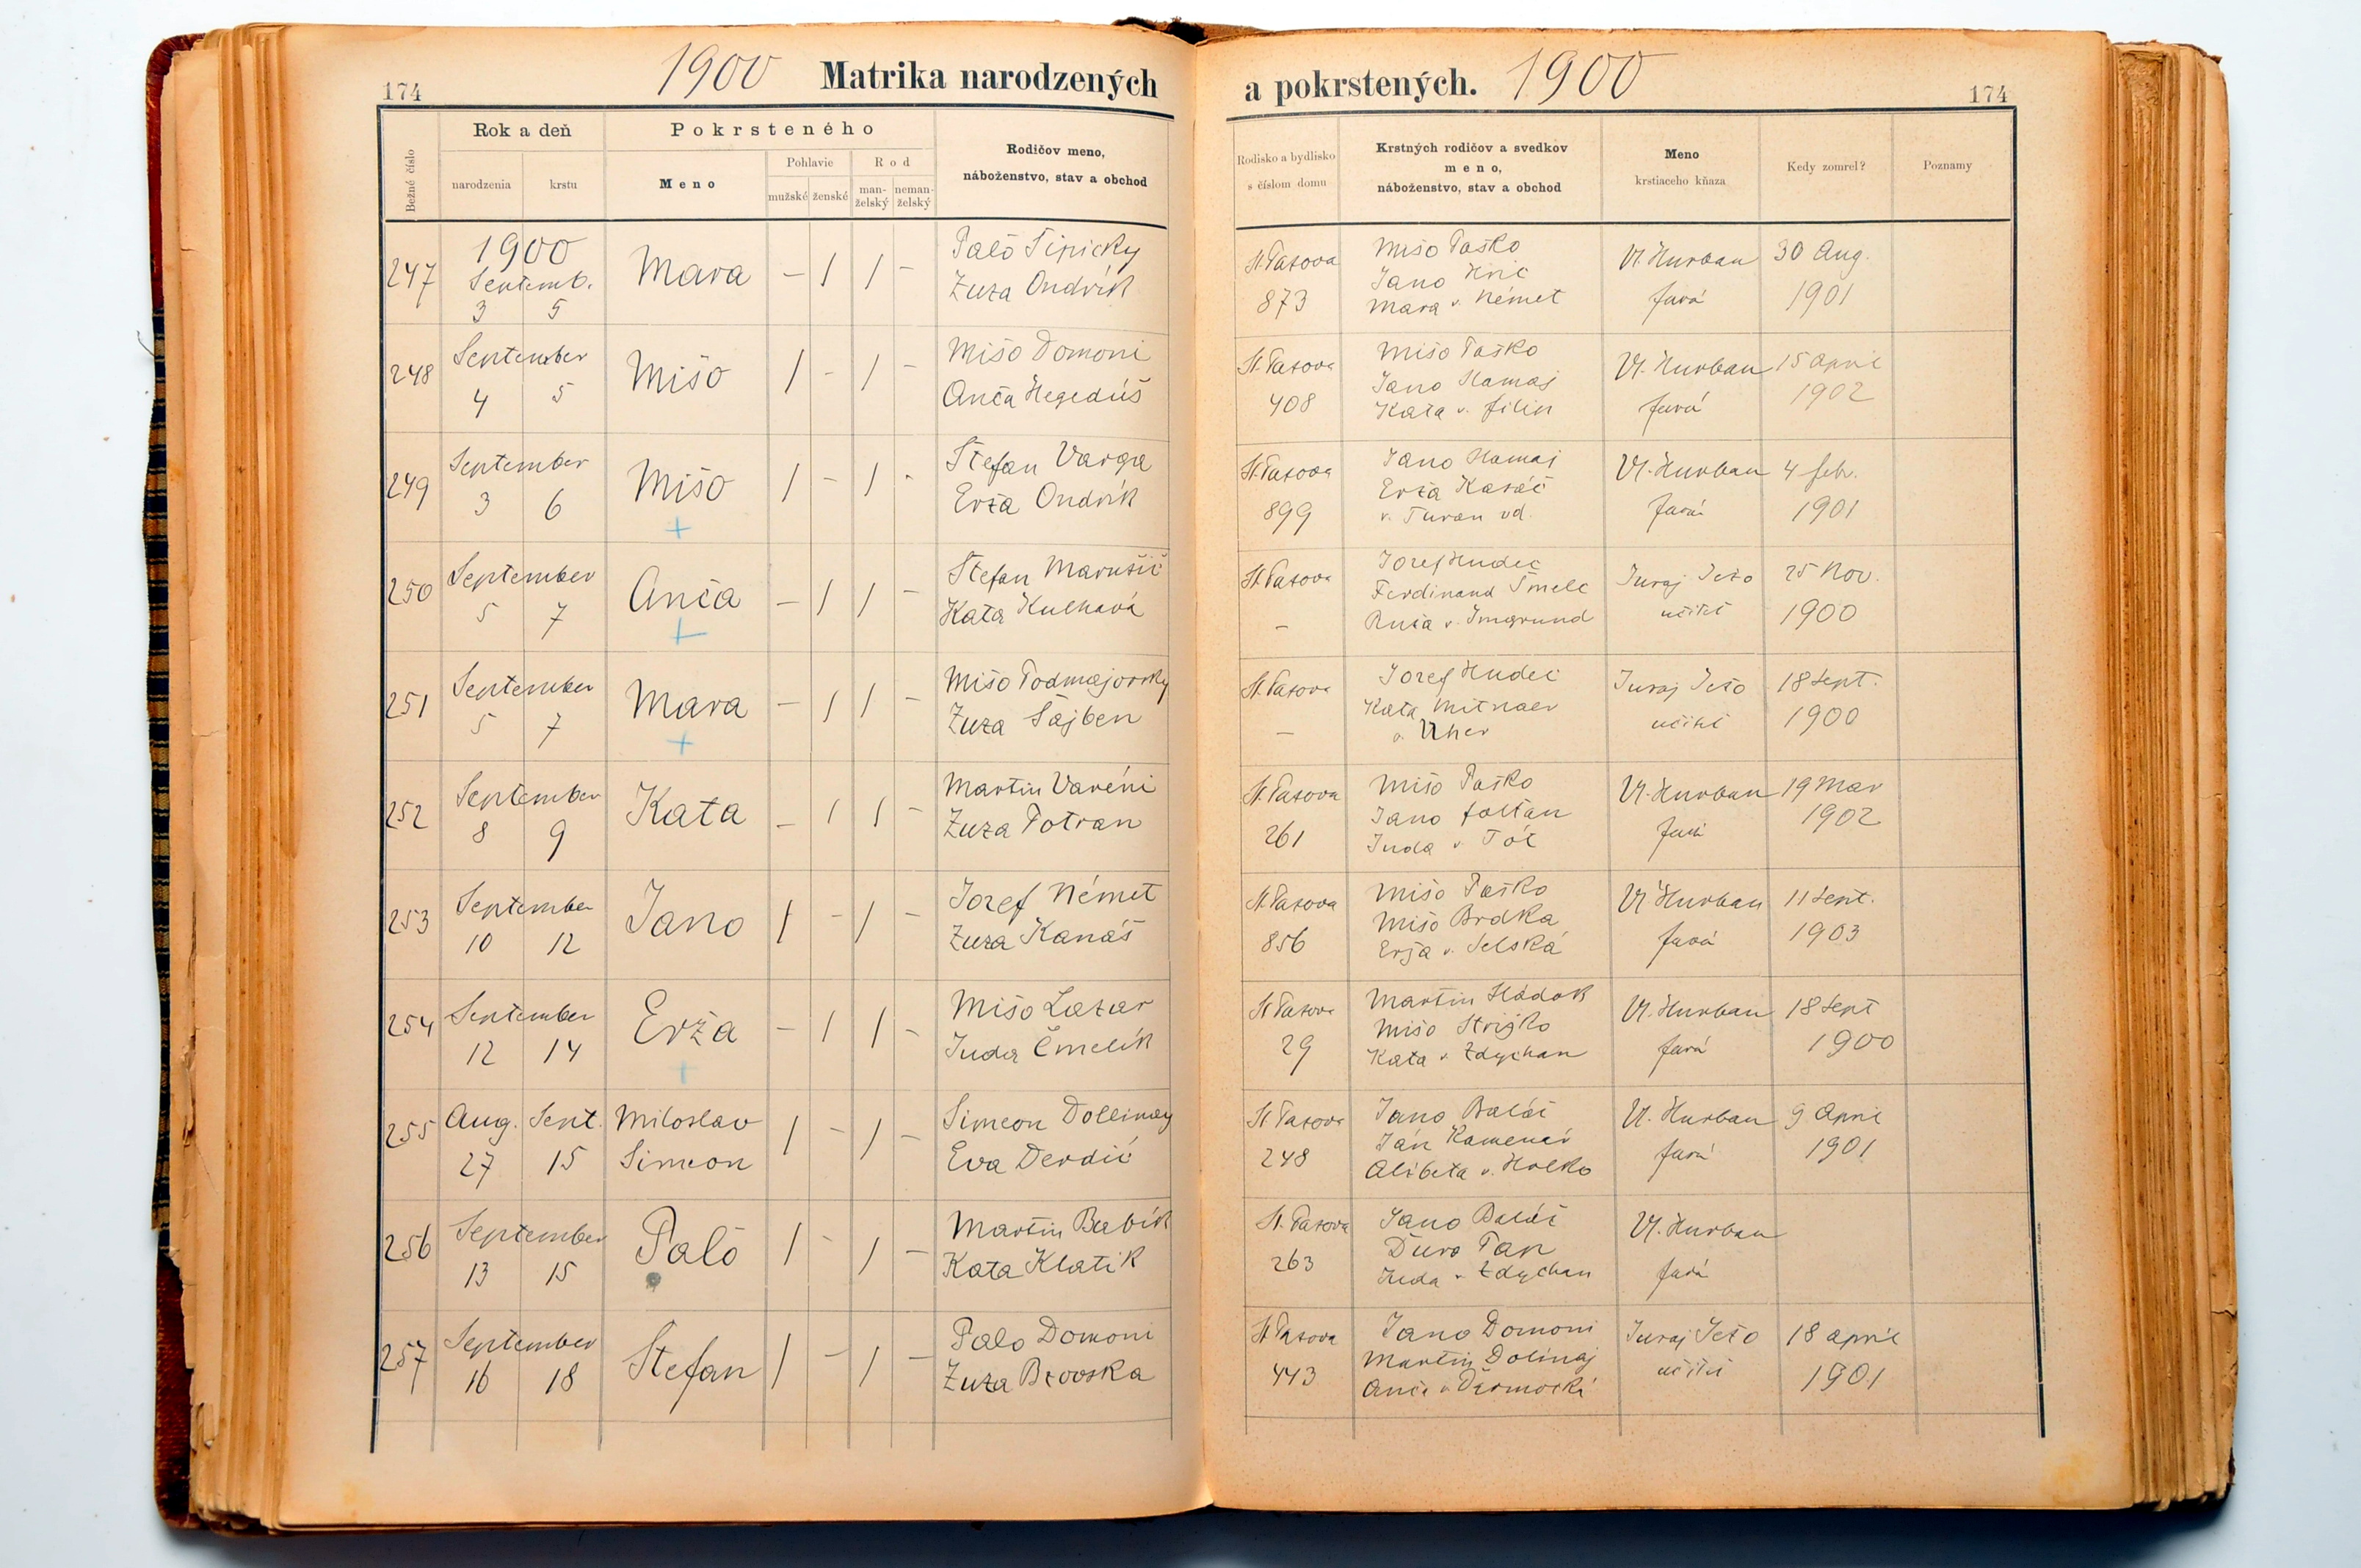 174
1900 Matrika narodzených
a pokrstených. 1900
174
Bežné číslo
Rok a deň
narodzenia
krstu
Pokrsteného
Meno
Pohlavie
mužské
ženské
Rod
man-
želský
neman-
želský
Rodičov meno,
náboženstvo, stav a obchod
Rodisko a bydlisko
s číslom domu
Krstných rodičov a svedkov
meno,
náboženstvo, stav a obchod
Meno
krstiaceho kňaza
Kedy zomrel?
Poznamy
247
1900
Septemb.
3 5
Mara
– / / –
Palo
Zuza Ondrík
St. Pazova
873
Mišo Paško
Jano
Mara v. Német
Vl. Hurban
farár
30 Aug.
1901
248
September
4 5
Mišo
/ – / –
Mišo Domoni
Anča Hegedúš
St. Pazova
408
Mišo Paško
Jano Hamaj
Kata v. Filip
Vl. Hurban
farár
15 April
1902
249
September
3 6
Mišo
+
/ – / –
Štefan Varga
Erža Ondrík
St. Pazova
899
Jano Hamaj
Erža
v. Turan vd.
Vl. Hurban
farár
4 feb.
1901
250
September
5 7
Anča
+
– / / –
Štefan Marušič
Kata Kulhavá
St. Pazova
–
Jozef Hudec
Ferdinand
Anča v. Imgrund
Juraj Ješo
učiteľ
25 Nov.
1900
251
September
5 7
Mara
+
– / / –
Mišo Podmajorsky
Zuza Šajben
St. Pazova
–
Jozef Hudec
Kata
v. Uher
Juraj Ješo
učiteľ
18 Sept.
1900
252
September
8 9
Kata
– / / –
Martin Varéni
Zuza Potran
St. Pazova
261
Mišo Paško
Jano Zoltan
Juda v. Tót
Vl. Hurban
farár
19 Mar
1902
253
September
10 12
Jano
/ – / –
Jozef Német
Zuza Kanáš
St. Pazova
856
Mišo Paško
Mišo Brdka
Erža v. Selská
Vl. Hurban
farár
11 Sept.
1903
254
September
12 14
Erža
+
– / / –
Mišo Lazar
Juda Čmelík
St. Pazova
29
Martin Hádok
Mišo Strižko
Kata v. Zdychan
Vl. Hurban
farár
18 Sept
1900
255
Aug. Sept.
27 15
Miloslav
Simeon
/ – / –
Simeon
Eva Derdić
St. Pazova
248
Jano Baláž
Ján Kamenár
Alžbeta v. Holko
Vl. Hurban
farár
9 April
1901
256
September
13 15
Palo
/ – / –
Martin Babík
Kata Klatik
St. Pazova
263
Jano Baláž
Ďuro Pap
Juda v. Zdychan
Vl. Hurban
farár
257
September
16 18
Štefan
/ – / –
Palo Domoni
Zuza Brovska
St. Pazova
443
Jano Domoni
Martin Dolinaj
Anča v.
Juraj Ješo
učiteľ
18 april
1901